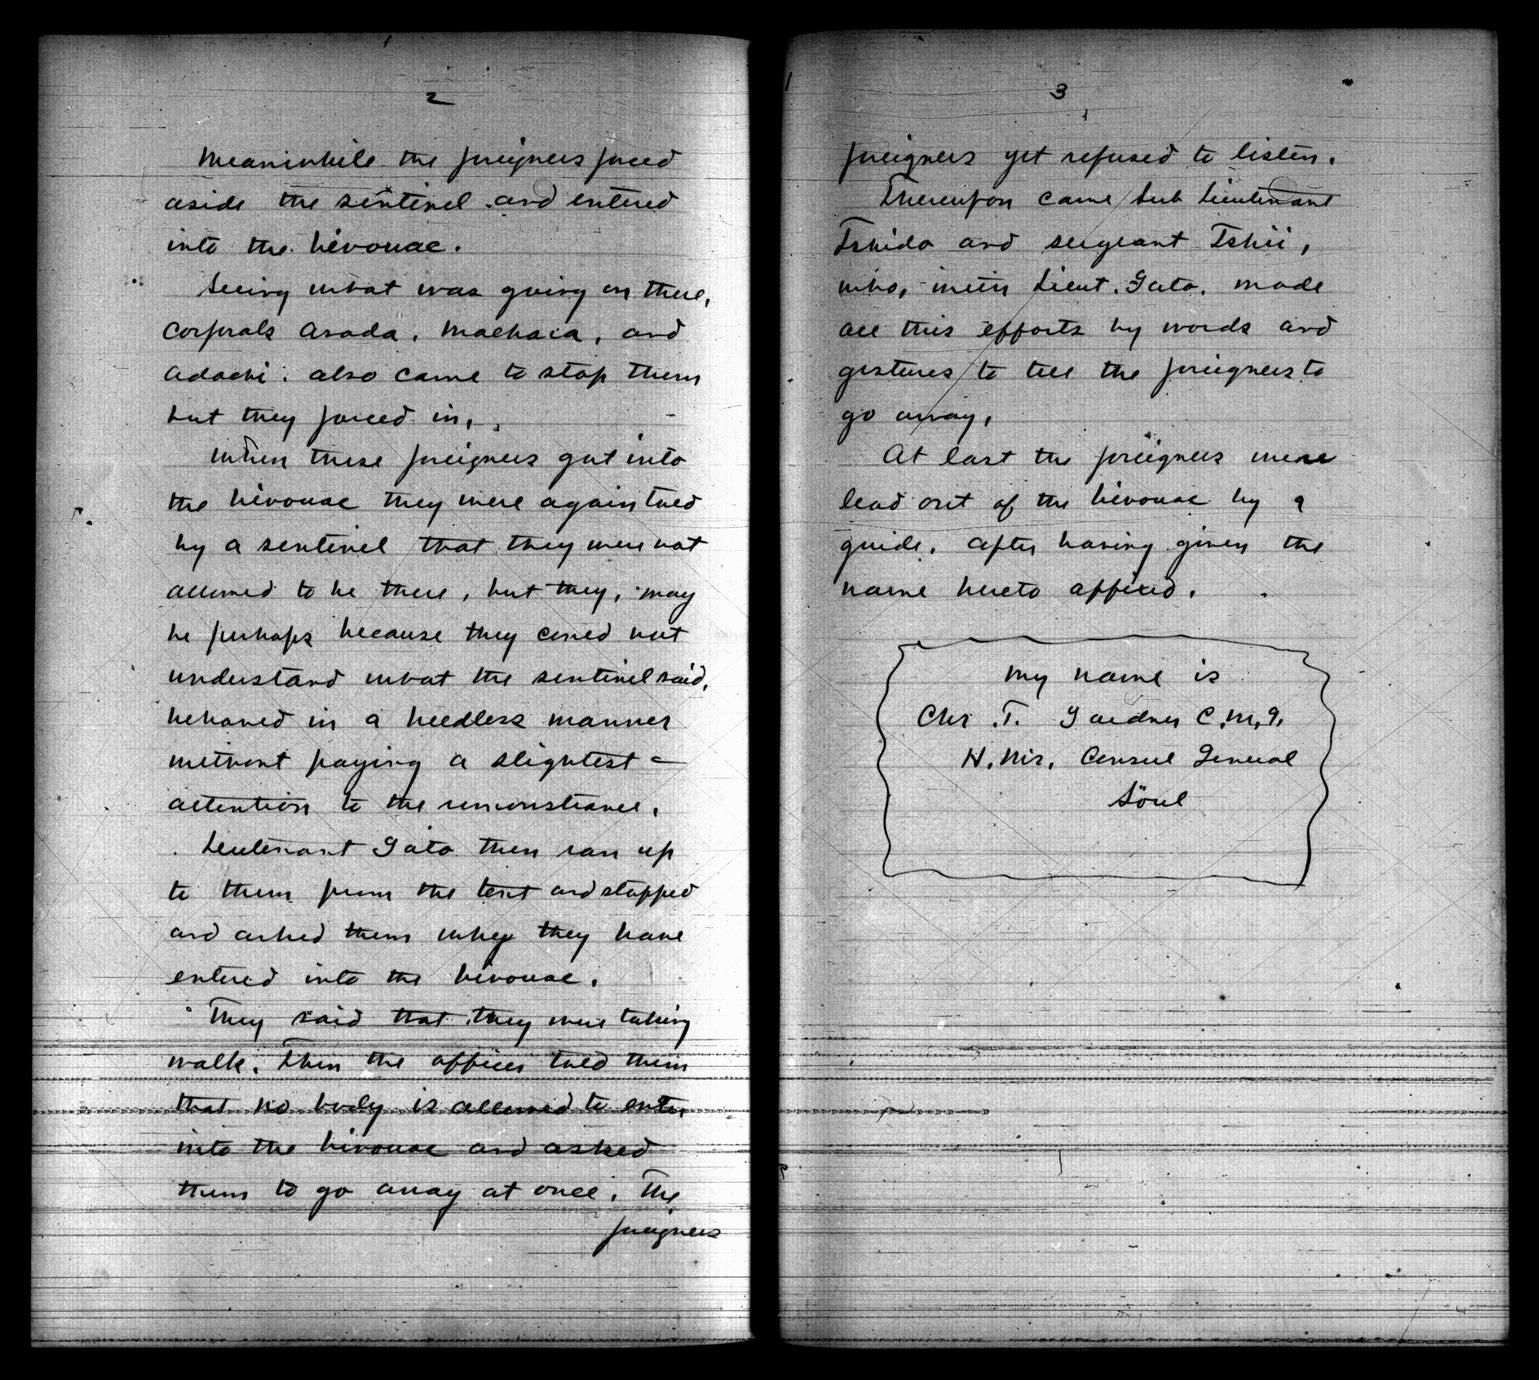 2
Meanwhile the foreigners forced
aside the sentinel and entered
into the bivouac.
Seeing what was going on there,
Corporals Asada, Maekaia, and
Adachi, also came to stop them
but they forced in,
When these foreigners got into
the bivouac they were again told
by a sentinel that they were not
allowed to be there, but they, may
be perhaps because they could not
understand what the sentinel said,
behaved in a heedless manner
without paying a slightest
attention to the remonstrance.
Lieutenant Gato then ran up
to them from the tent and stopped
and asked them why they have
entered into the bivouac.
They said that they were taking
walk. Then the officer told them
that no body is allowed to enter
into the bivouac and asked
them to go away at once. The
foreigners
3
foreigners yet refused to listen.
Thereupon came Sub Lieutenant
Ishido and sergeant Ishii,
who, with Lieut. Gato, made
all this efforts by words and
gestures to tell the foreigners to
go away,
At last the foreigners were
lead out of the bivouac by a
guide, after having given the
name hereto affixed.
My name is
Chr. T. Gardner C.M.G.
H.M's. Consul General
Söul